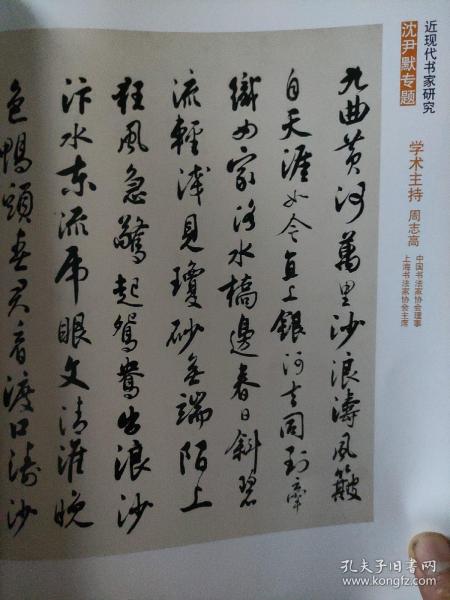 近现代书家研究
沈尹默专题
学术主持 周志高
中国书法家协会理事
上海书法家协会主席
九曲黄河萬里沙浪濤風簸
自天涯如今直上銀河去同到牽
織女家洛水橋邊春日斜碧
流輕淺見瓊砂無端陌上
狂風急驚起鴛鴦出浪沙
汴水東流虎眼文清淮曉
色鴨頭春君看渡口淘沙
孔夫子旧书网
www.kongfz.com